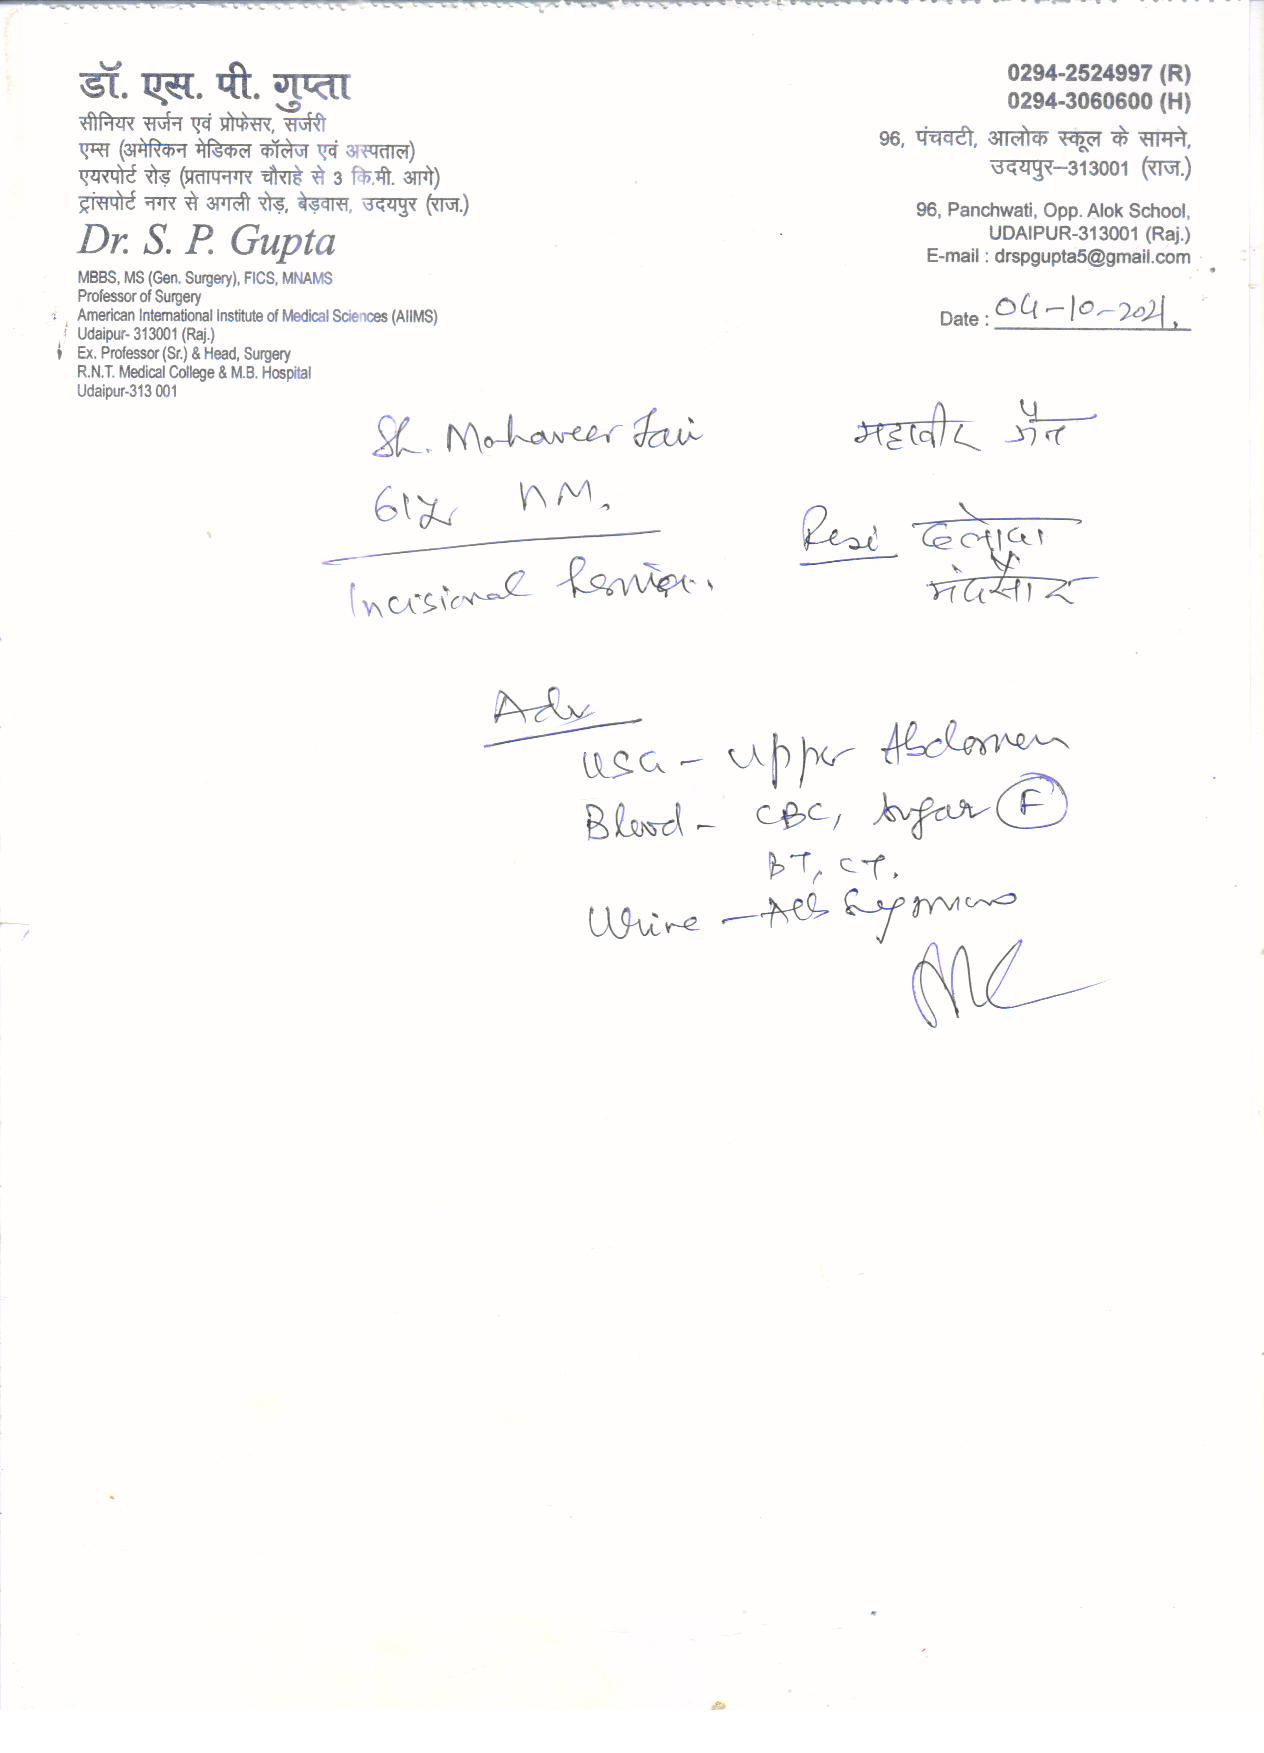 डॉ. एस. पी. गुप्ता
सीनियर सर्जन एवं प्रोफेसर, सर्जरी
एम्स (अमेरिकन मेडिकल कॉलेज एवं अस्पताल)
एयरपोर्ट रोड़ (प्रतापनगर चौराहे से 3 कि.मी. आगे)
ट्रांसपोर्ट नगर से अगली रोड़, बेड़वास, उदयपुर (राज.)
Dr. S. P. Gupta
MBBS, MS (Gen. Surgery), FICS, MNAMS
Professor of Surgery
American International Institute of Medical Sciences (AIIMS)
Udaipur- 313001 (Raj.)
Ex. Professor (Sr.) & Head, Surgery
R.N.T. Medical College & M.B. Hospital
Udaipur-313 001
0294-2524997 (R)
0294-3060600 (H)
96, पंचवटी, आलोक स्कूल के सामने,
उदयपुर–313001 (राज.)
96, Panchwati, Opp. Alok School,
UDAIPUR-313001 (Raj.)
E-mail : drspgupta5@gmail.com
Date : 04-10-2021
Sh. Mahaveer Jain महावीर जैन
Resi
मंदसौर
Incisional hernia.
Adv
USG - Upper Abdomen
Blood - CBC, Sugar (F)
BT, CT.
Urine -